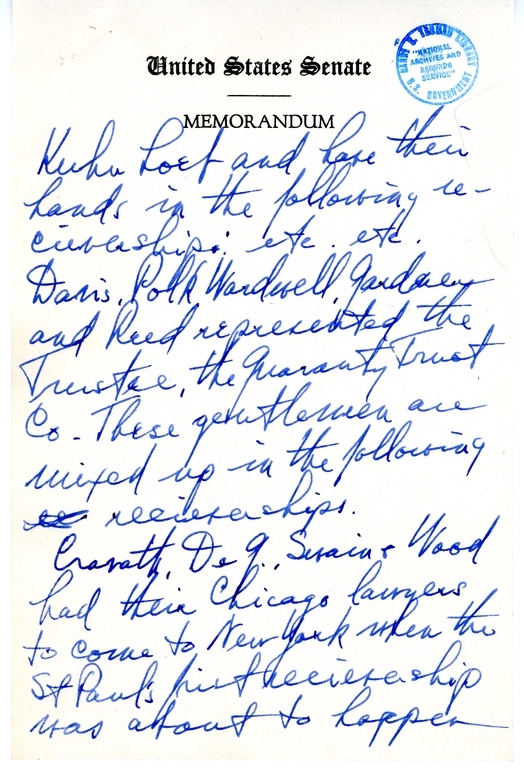 United States Senate
MEMORANDUM
HARRY S. TRUMAN LIBRARY
"NATIONAL
ARCHIVES AND
RECORDS
SERVICE"
U.S. GOVERNMENT
Kuhn Loeb and have their
hands in the following re-
cieverships: etc. etc.
Davis, Polk Wardwell, Gardiner
and Reed represented the
Trustee, the Guaranty Trust
Co. These gentlemen are
mixed up in the following
recieverships.
Cravath, De G., Swain & Wood
had their Chicago lawyers
to come to New York when the
St Paul's first recievership
was about to happen